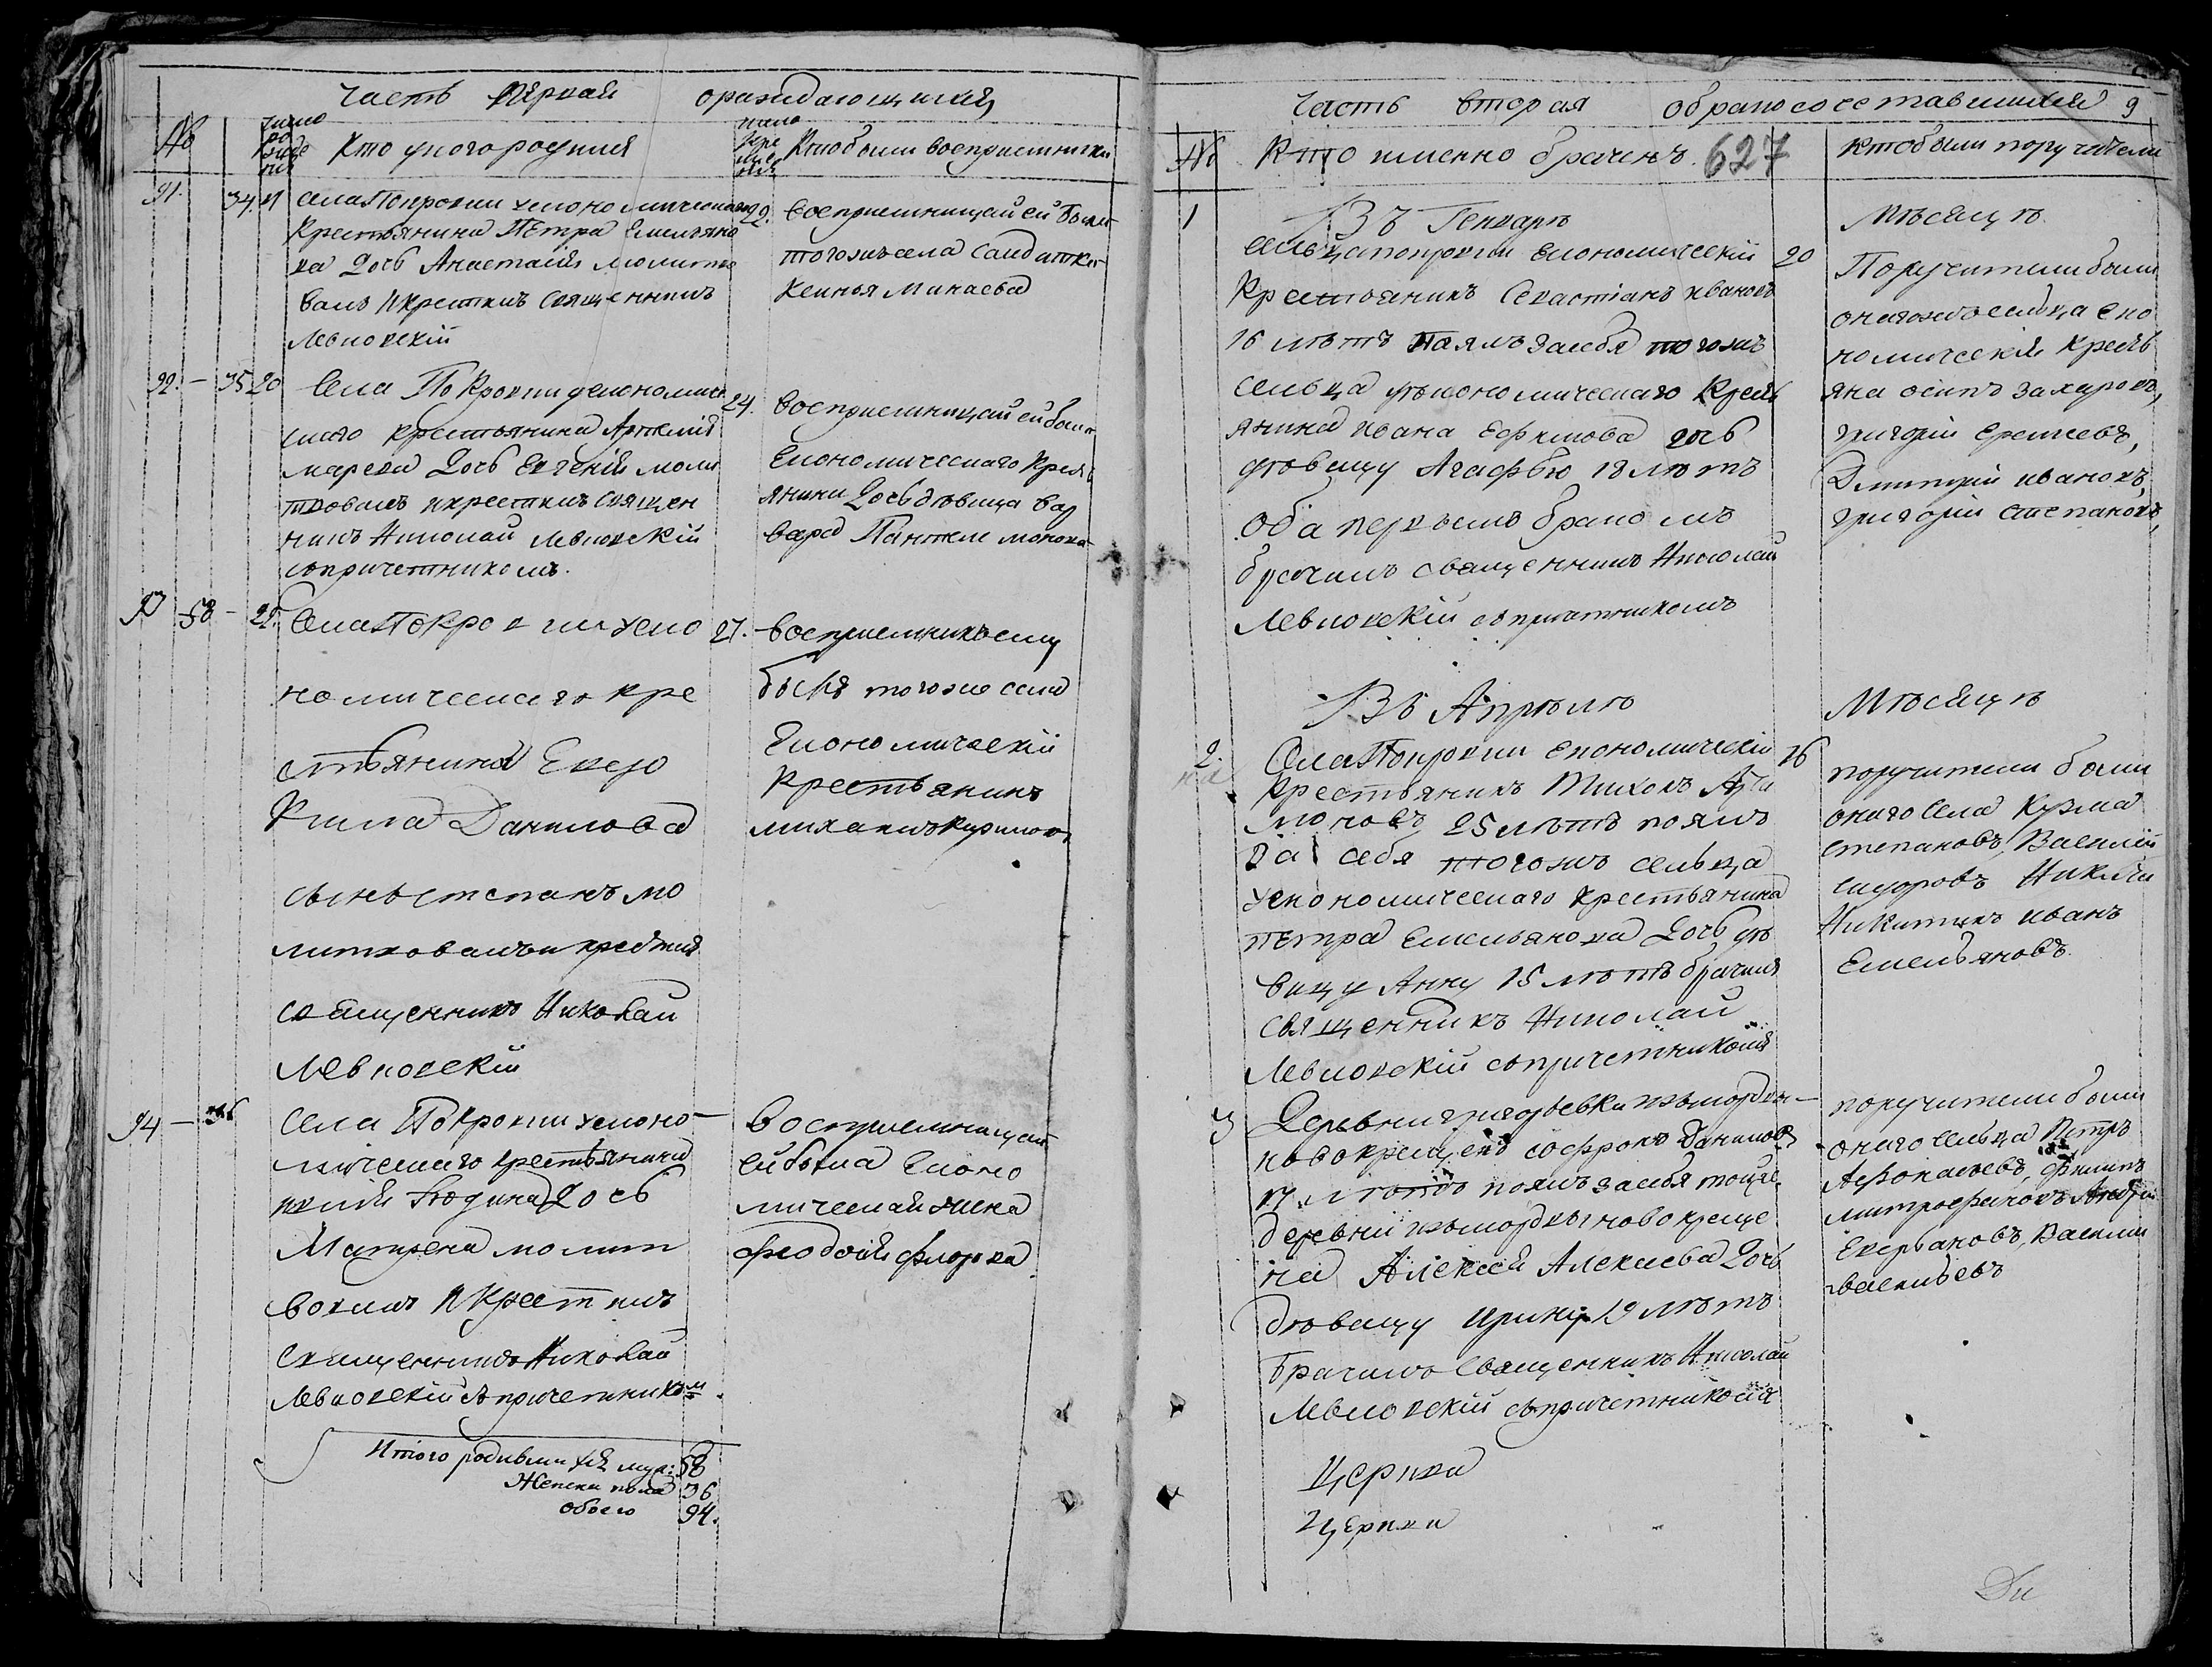 часть первая о раждающихся
№
число рожденія
Кто у кого родился
число крещенія
Кто были восприемники
91. 34. 21
села Покровки у економическаго 22.
Крестьянина Петра Емельяно
ва дочь Анастасія молитво
валъ и крестилъ Священникъ
Левковскій
восприемницей ей была
тогожъ села Салдатка
Ксенья Минаева
92. — 35 20
Села Покровки у економиче 24.
скаго крестьянина Артемія
маркова дочь Евгенія моли
твовалъ и крестилъ священ
никъ Николай Левковскій
съ причетникомъ.
восприемницей ей была
Економическаго Крестья
янина дочь дѣвица Вар
вара Пантелемонова
93 58 — 25.
Села Покровки у еко 27.
номическаго кре
стьянина Евдо
кима Данилова
сынъ степанъ мо
литвовалъ и крестилъ
священникъ Николай
Левковскій
восприемникъ ему
былъ тогоже села
Економическій
Крестьянинъ
михаилъ
94 — 36
Села Покровки у еконо
мическаго крестьянина
Юдина дочь
Матрена молит
вовалъ и Крестилъ
священникъ Николай
Левковскій съ причетникомъ
восприемницей
ей была Еконо
мическая жена
Федосія Флорова
Итого родившихся муж: 58
Женска пола 36
обоего 94.
часть вторая о бракосочетавшихся 9
№
Кто именно браченъ 627
Кто были поручители
1
Въ Генварѣ
Сельца покровки Економическій 20
Крестьянинъ Севастіанъ Ивановъ
16 лѣтъ поялъ за себя тогожъ
сельца у економическаго Кресть
янина Ивана Ефимова дочь
дѣвицу Агафью 18 лѣтъ
оба первымъ бракомъ
брачилъ священникъ Николай
Левковскій съ причетникомъ
Мѣсяцѣ
Поручители были
онагожъ сельца Еко
номическія Кресть
яна осипъ захаровъ,
григорій Сергеевъ,
Дмитрій ивановъ,
григорій степановъ,
Въ Апрѣлѣ
2.
Села Покровки економическій 26
Крестьянинъ Тихонъ Арта
моновъ 25 лѣтъ поялъ
за себя тогожъ сельца
у економическаго крестьянина
петра Емельянова дочь дѣ
вицу Анну 15 лѣтъ брачилъ
священникъ Николай
Левковскій съ причетникомъ
Мѣсяцѣ
поручители были
онаго села Кузма
степановъ, Василей
сидоровъ Никита
Никитинъ иванъ
Емельяновъ
3
Деревни григорьевки изъ мордвы
новокрещенъ софронъ Даниловъ
17 лѣтъ поялъ за себя тоеже
деревни изъ мордвы новокреще
на Алексея Алексеева дочь
дѣвицу Ирину 19 лѣтъ
брачилъ священникъ Николай
Левковскій съ причетникомъ
поручители были
онаго сельца Петръ
Афонасьевъ, филипъ
митрофановъ Андрей
Василій
васильевъ
Церкви
Церкви